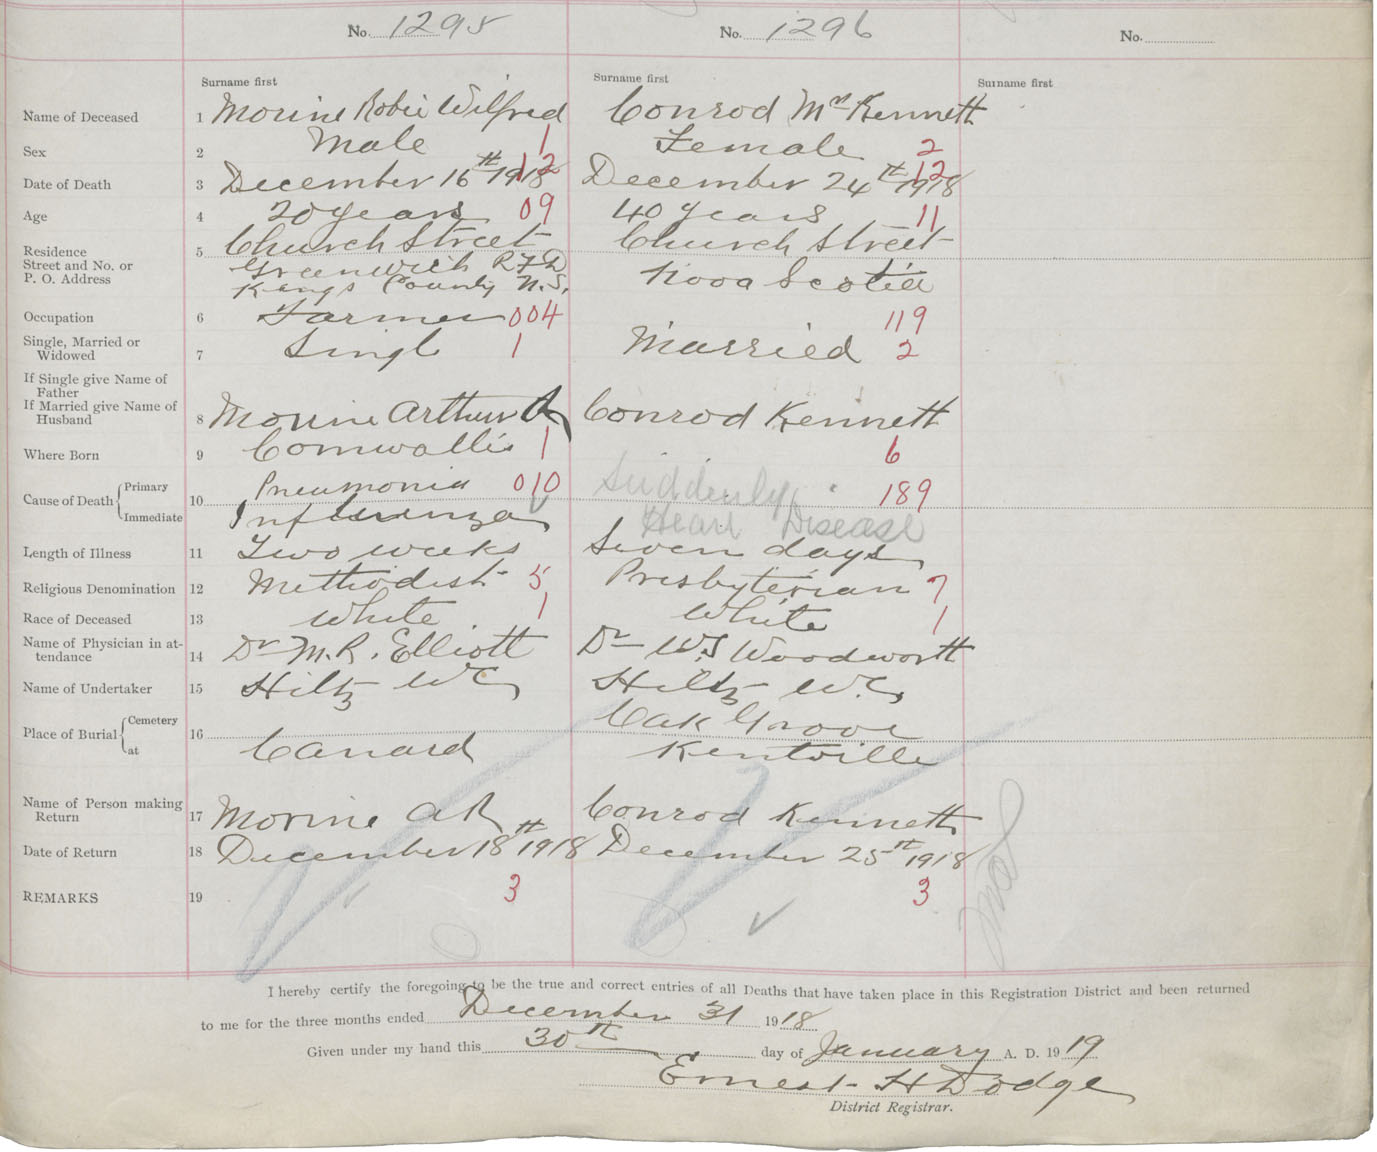 No. 1295 No. 1296 No.
Surname first Surname first Surname first
Name of Deceased 1 Morine Robie Wilfred Conrod Mrs Kennett
Sex 2 Male 1 Female 2
Date of Death 3 December 16th 1918 12 December 24th 1918 12
Age 4 20 years 09 40 years 11
Residence 5 Church Street Church Street
Street and No. or Greenwich R.F.D.
P. O. Address Kings County N.S. Nova Scotia
Occupation 6 Farmer 004 119
Single, Married or
Widowed 7 Singl 1 Married 2
If Single give Name of
Father
If Married give Name of
Husband 8 Morine Arthur Conrod Kennett
Where Born 9 Cornwallis 1 6
Cause of Death Primary 10 Pneumonia 010 Suddenly 189
Immediate Influenza Heart Disease
Length of Illness 11 Two weeks Seven days
Religious Denomination 12 Methodist 5 Presbyterian 7
Race of Deceased 13 White 1 White 1
Name of Physician in at-
tendance 14 Dr M.R. Elliott Dr W.S Woodworth
Name of Undertaker 15 Hiltz W.C. Hiltz W.C.
Place of Burial Cemetery 16 Oak Grove
at Canard Kentville
Name of Person making
Return 17 Morine A R Conrod Kennett
Date of Return 18 December 18th 1918 December 25th 1918
REMARKS 19 3 3
I hereby certify the foregoing to be the true and correct entries of all Deaths that have taken place in this Registration District and been returned
to me for the three months ended December 31 1918
Given under my hand this 30th day of January A. D. 1919
Ernest H Dodge
District Registrar.